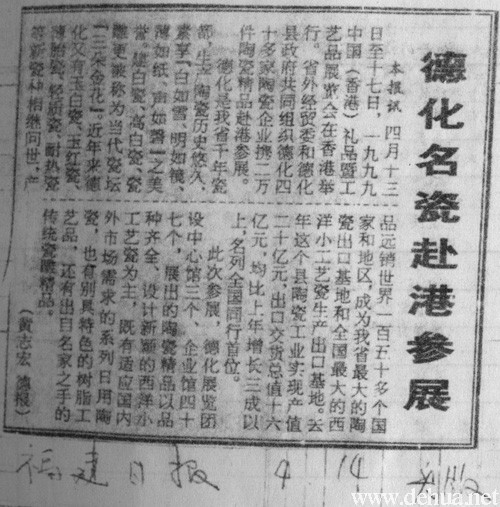 德化名瓷赴港参展
本报讯 四月十三
日至十七日，一九九九
中国（香港）礼品暨工
艺品展览会在香港举
行。省外经贸委和德化
县政府共同组织德化四
十多家陶瓷企业携二万
件陶瓷精品赴港参展。
德化是我省千年瓷
都，生产陶瓷历史悠久，
素享「白如雪、明如镜、
薄如纸、声如磬」之美
誉。建白瓷、高白瓷、瓷
雕更被称为当代瓷坛
「三朵金花」。近年来德
化又有玉白瓷、玉红瓷、
薄胎瓷、轻质瓷、耐热瓷
等新瓷种相继问世，产
品远销世界一百五十多个国
家和地区，成为我省最大的陶
瓷出口基地和全国最大的西
洋小工艺瓷生产出口基地。去
年这个县陶瓷工业实现产值
二十亿元，出口交货总值十六
亿元，均比上年增长三成以
上，名列全国同行首位。
此次参展，德化展览团
设中心馆三个、企业馆四十
七个，展出的陶瓷精品以品
种齐全、设计新颖的西洋小
工艺瓷为主，既有适应国内
外市场需求的系列日用陶
瓷，也有别具特色的树脂工
艺品，还有出自名家之手的
传统瓷雕精品。
（黄志宏 德报）
福建日报 4 14 版
www.dehua.net